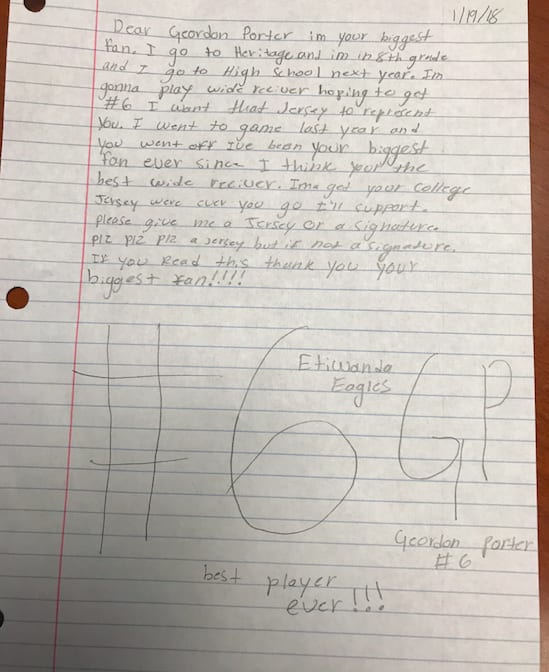 1/19/18
Dear Geordon Porter im your biggest
fan. I go to Heritage and im in 8th grade
and I go to High School next year. Im
gonna play wide reciver hoping to get
#6 I want that Jersey to represent
you. I went to game last year and
you went off I've been your biggest
fan ever since I think your the
best wide reciver. Ima get your college
Jersey were ever you go I'll support.
please give me a Jersey or a signature
plz plz plz a jersey but if not a signature.
If you Read this thank you your
biggest fan!!!!
#6 GP
Etiwanda
Eagles
Geordon Porter
#6
best player
ever!!!